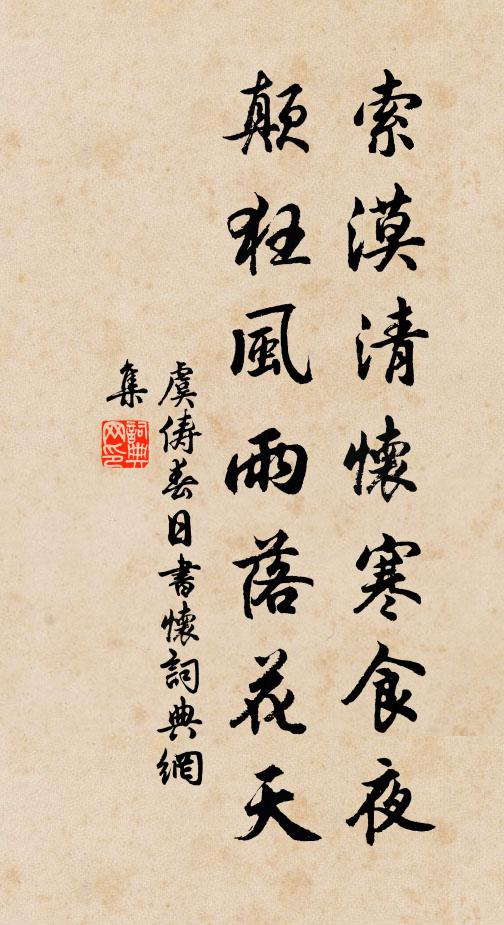 索漠清懷寒食夜
顛狂風雨落花天
虞儔春日書懷詞典網
集
詞典
网印